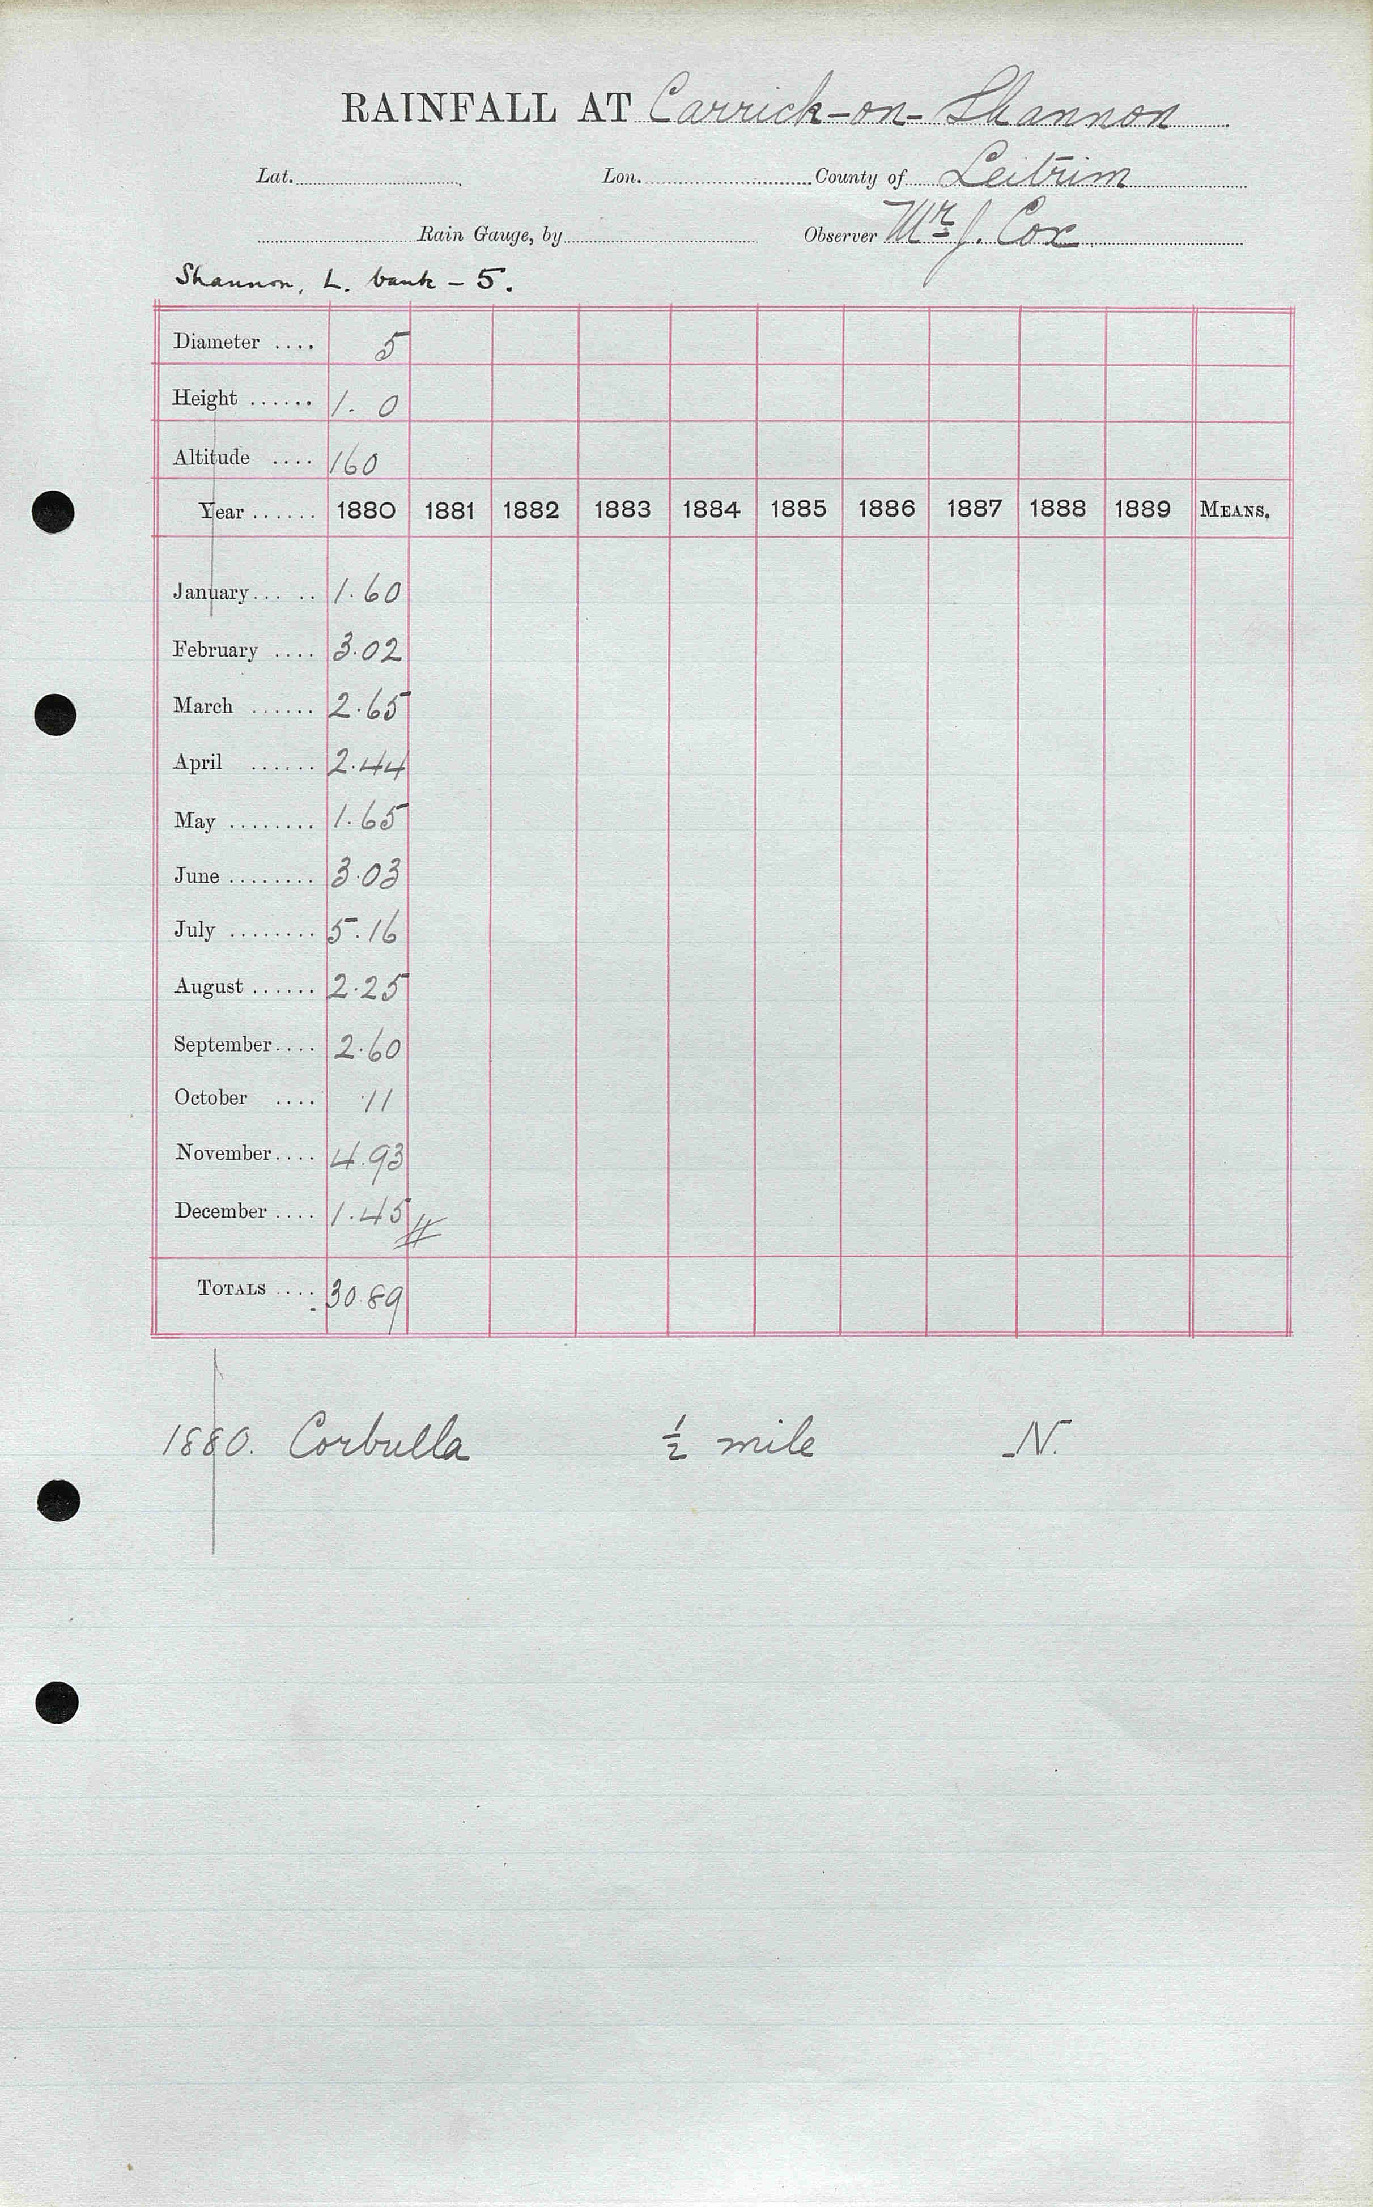 RAINFALL AT Carrick-on-Shannon
Lat. Lon. County of Leitrim
Rain Gauge, by Observer Mr J. Cox
Shannon, L. bank - 5.
Diameter .... 5
Height ...... 1. 0
Altitude .... 160
Year ...... 1880 1881 1882 1883 1884 1885 1886 1887 1888 1889 MEANS.
January ... .. 1.60
February .... 3.02
March ...... 2.65
April ...... 2.44
May ........ 1.65
June ........ 3.03
July ........ 5.16
August ...... 2.25
September .... 2.60
October .... .11
November .... 4.93
December .... 1.45
TOTALS .... 30.89
1880. Corbulla ½ mile N.